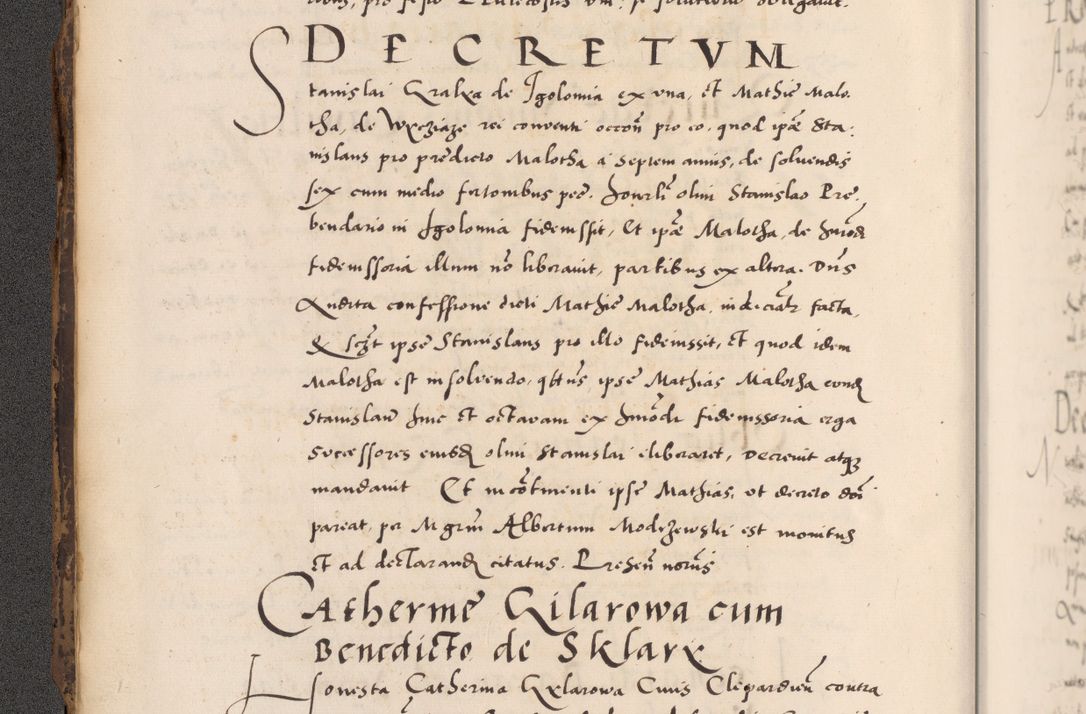 DECRETVM
Stanislai Gralka de Igolomia ex vna, et Mathie Malo,
tha, de Wyciąże rei conventi occoñ pro eo, quod ipse Sta,
nislaus pro predicto Malotha a septem annis, de solvendis
sex cum medio fertonibus pec. olim Stanislao Pre,
bendario in Igolomia fideiussit, Et ipse Malotha, de
fideiussoria illum nõ liberauit, partibus ex altera. Dñs
Audita confessione dicti Mathie Malotha, facta,
ipse Stanislaus pro illo fideiussit, et quod idem
Malotha est in solvendo, ipse Mathias Malotha
Stanislaũ hinc et octavam ex fideiussoria erga
successores olim Stanislai eliberaret, decrevit atq3
mandauit Et in cõtinenti ipse Mathias, vt decreto
pareat, per Mgrm Albertum Modrzewski est monitus
et ad declarand citatus. Preseñ
Catherine Gilarowa cum
Benedicto de Sklary
Honesta Catherina Gylarowa Ciuis Clepardieñ contra